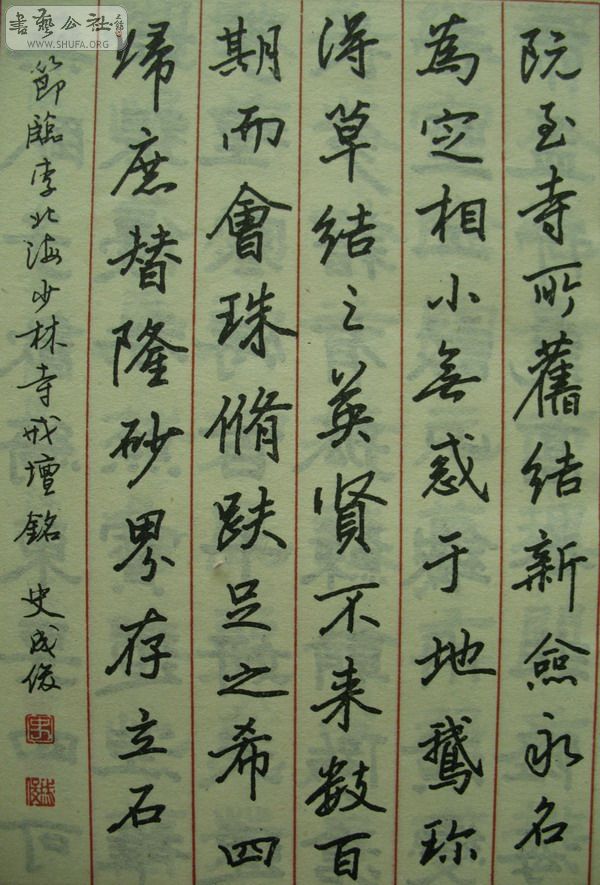 阮至寺所舊結新僉永名
為定相小無惑于地鵝珎
淂草结之英贤不来数百
期而會珠脩趺足之希四
歸庶替隆砂界存立石
節臨李北海少林寺戒壇銘 史成俊
書藝公社
WWW.SHUFA.ORG